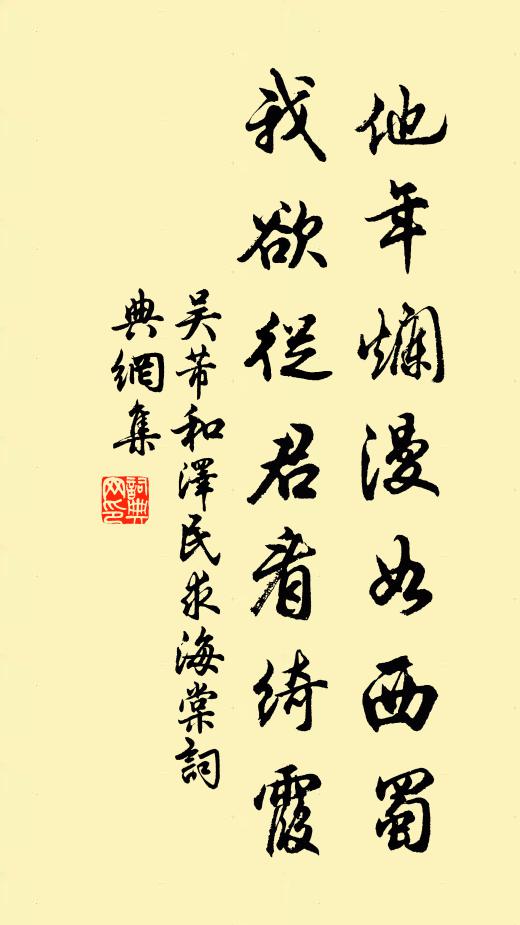 他年爛漫如西蜀
我欲從君看綺霞
吳芾和澤民求海棠詞
典網集
詞典網印